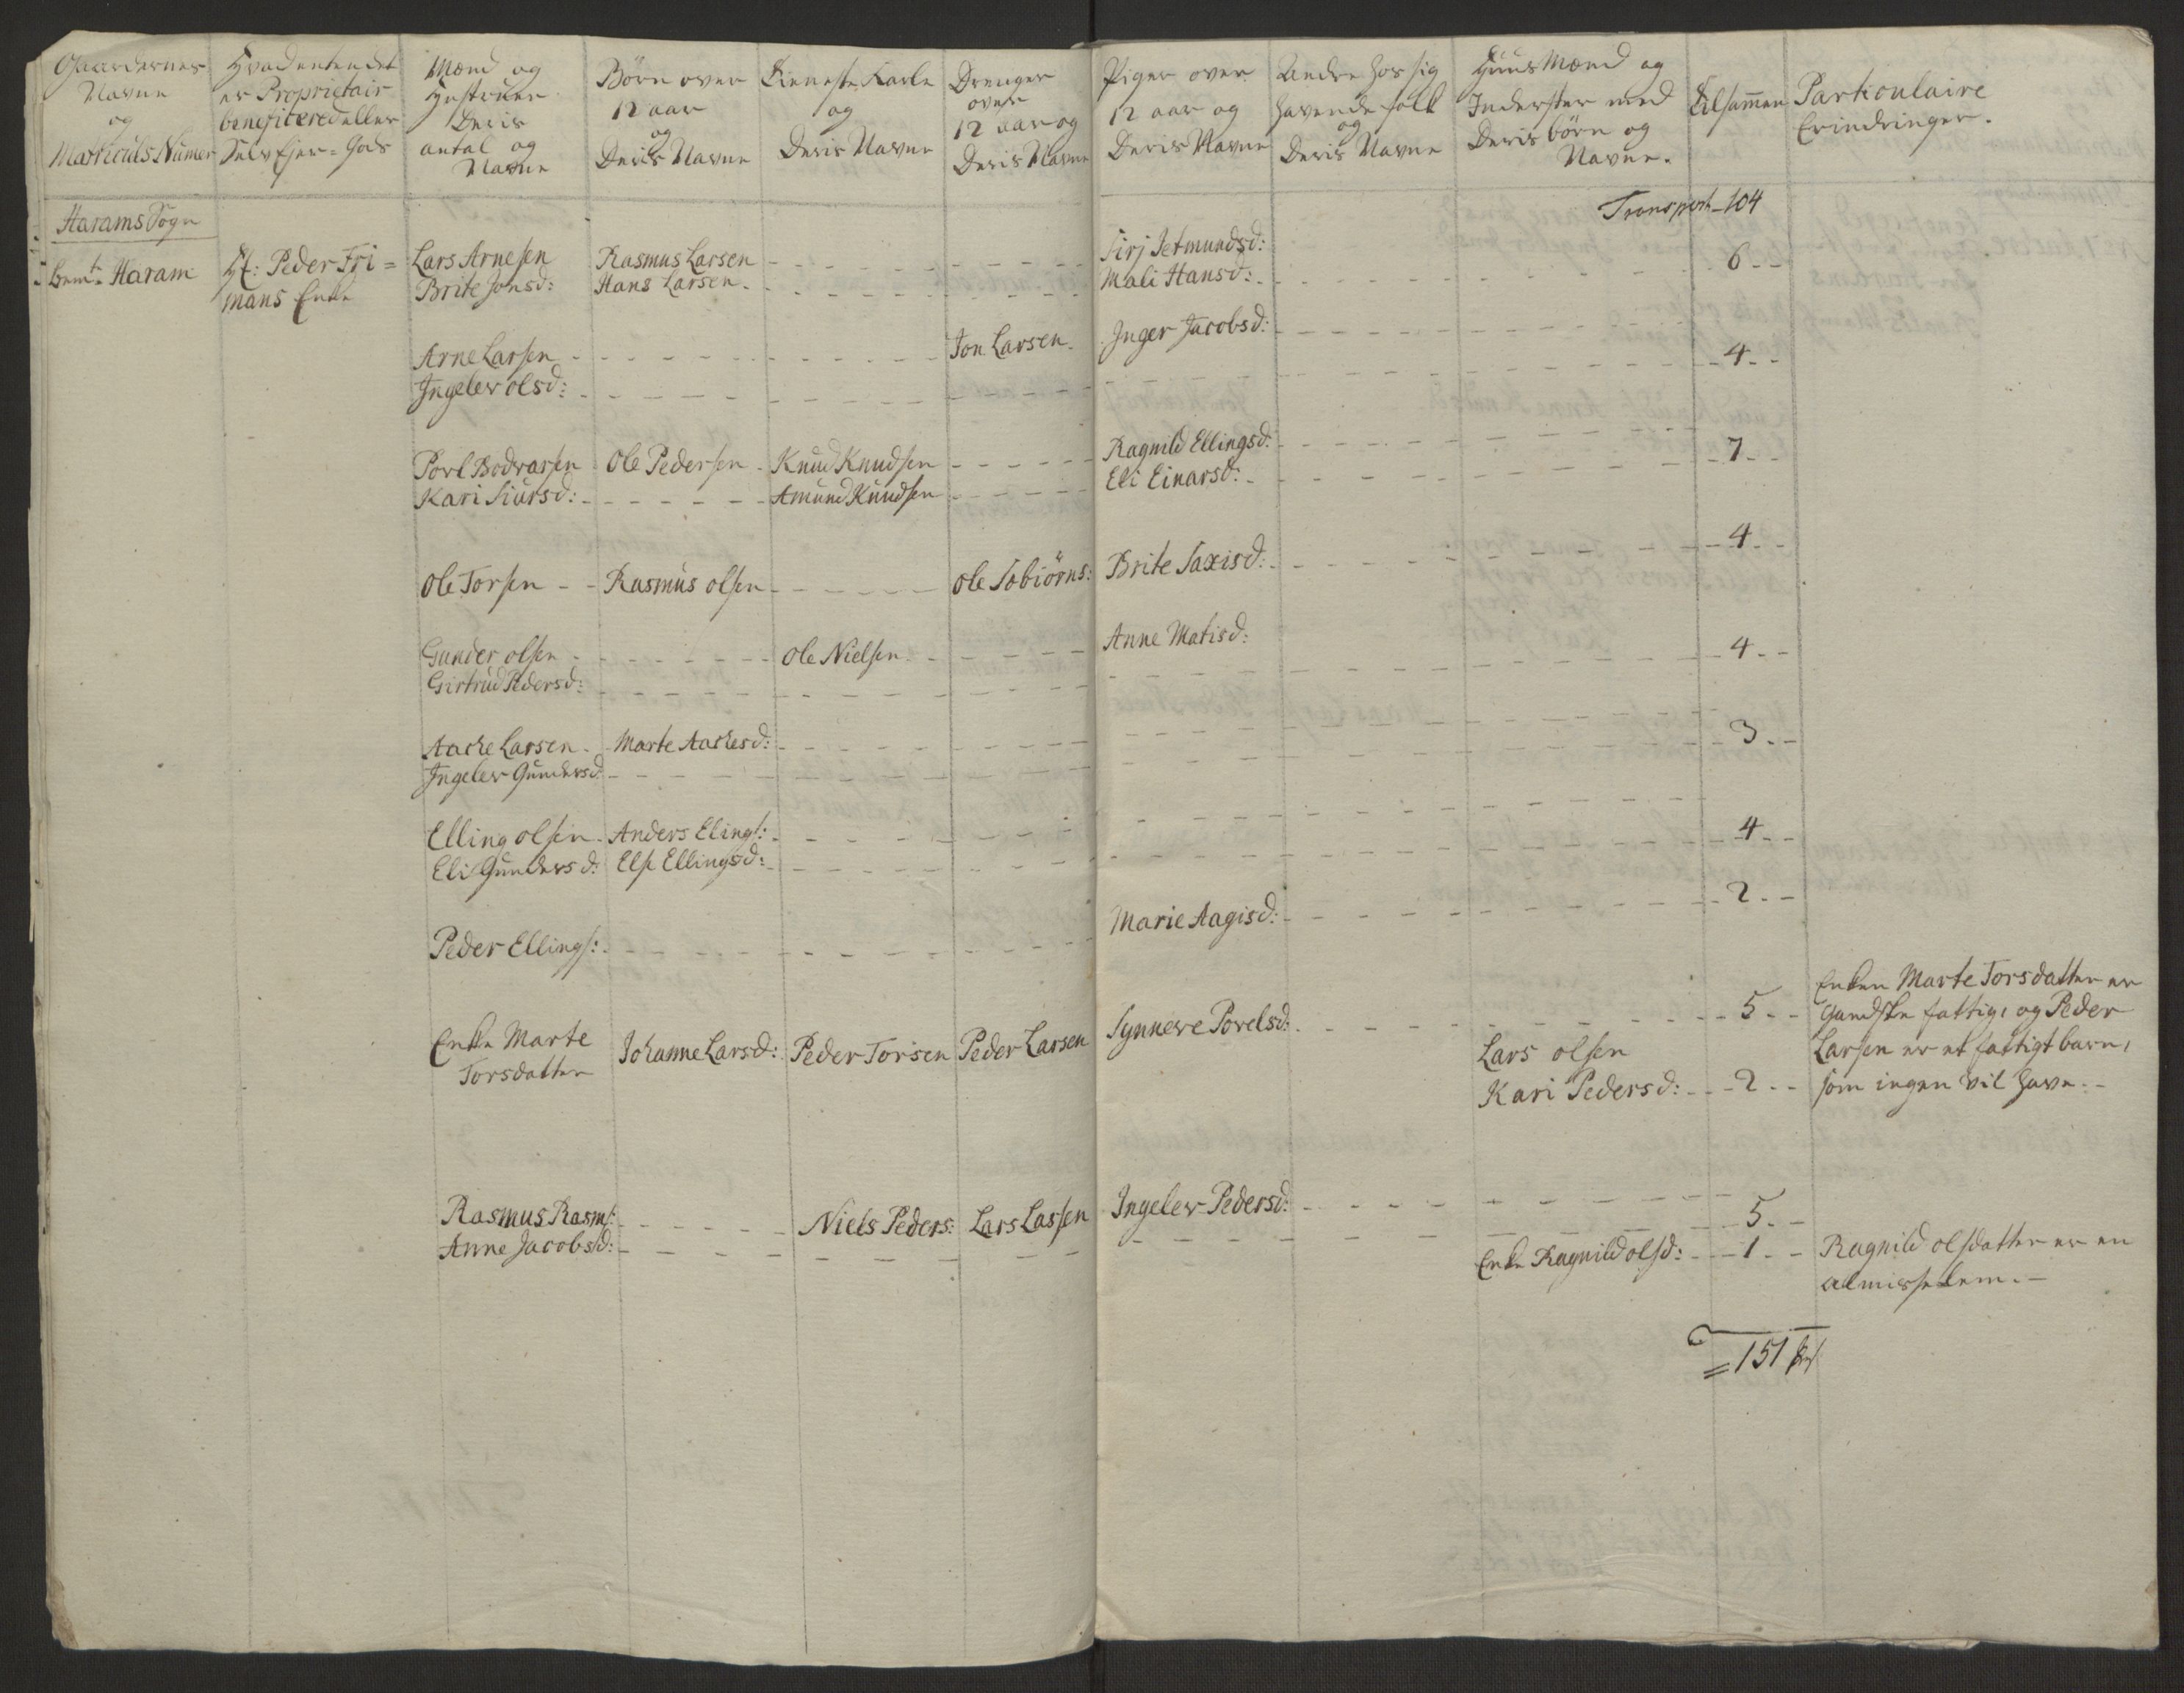 Gaardernes Navne og Matriculs Numer
Hvad enten det er Proprietair beneficered eller Selv Ejer-Gods
Mænd og Hustruer Deris antal og Navne
Børn over 12 aar og Deris Navne
Tieneste Karle og Deris Navne
Drenger over 12 aar og Deris Navne
Piger over 12 aar og Deris Navne
Andre hos sig havende folk og Deris Navne
Huus Mænd og Inderster med Deris børn og Navne.
Tilsammen
Particulaire Erindringer.
Harams Sogn
Transport 104
Haram
Hr: Peder Fri=
mans Enke
Lars Arnesen Rasmus Larsen Sirj Jetmundsd:
Brite Jonsd: Hans Larsen. Mali Hansd: 6
Arne Larsen Jon Larsen. Inger Jacobsd:
Ingelev olsd: 4
Povl Bodvarsen Ole Pedersen Knud Knudsen Ragnild Ellingsd:
Kari Siursd: Amund Knudsen Eli Einarsd: 7
Ole Torsen Rasmus olsen Ole Tobiörns: Brite Saxisd: 4
Gunder olsen Ole Nielsen Anne Matisd:
Girtrud Pedersd: 4
Aache Larsen Marte Aachesd:
Ingelev Gundersd: 3
Elling olsen Anders Elings:
Eli Gundersd: Else Ellingsd: 4
Peder Ellings: Marie Aagisd: 2
Enke Marte Torsdatter Johanne Larsd: Peder Torsen Peder Larsen Synneve Povelsd: 5
Lars olsen
Kari Pedersd: 2
Enken Marte Torsdatter er
gandske fattig, og Peder
Larsen er et fattigt barn,
som ingen vil have.
Rasmus Rasms: Niels Peders: Lars Larsen Ingelev Pedersd:
Anne Jacobsd: 5
Enke Ragnild olsd: 1
Ragnild olsdatter er en
almisselem.
151